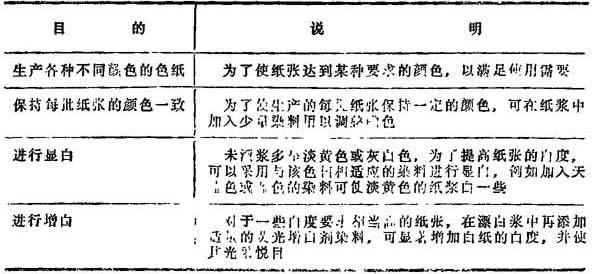 目 的 说 明
生产各种不同颜色的色纸 为了使纸张达到某种要求的颜色，以满足使用需要
保持每批纸张的颜色一致 为了使生产的每批纸张保持一定的颜色，可在纸浆中
加入少量染料用以调整颜色
进行显白 未漂浆多呈淡黄色或灰白色，为了提高纸张的白度，
可以采用与该色相相适应的染料进行显白，例如加入天
蓝色或 色的染料可使淡黄色的纸浆白一些
进行增白 对于一些白度要求相当高的纸张，在漂白浆中再添加
适量的荧光增白剂染料，可显著增加白纸的白度，并使
其光 悦目